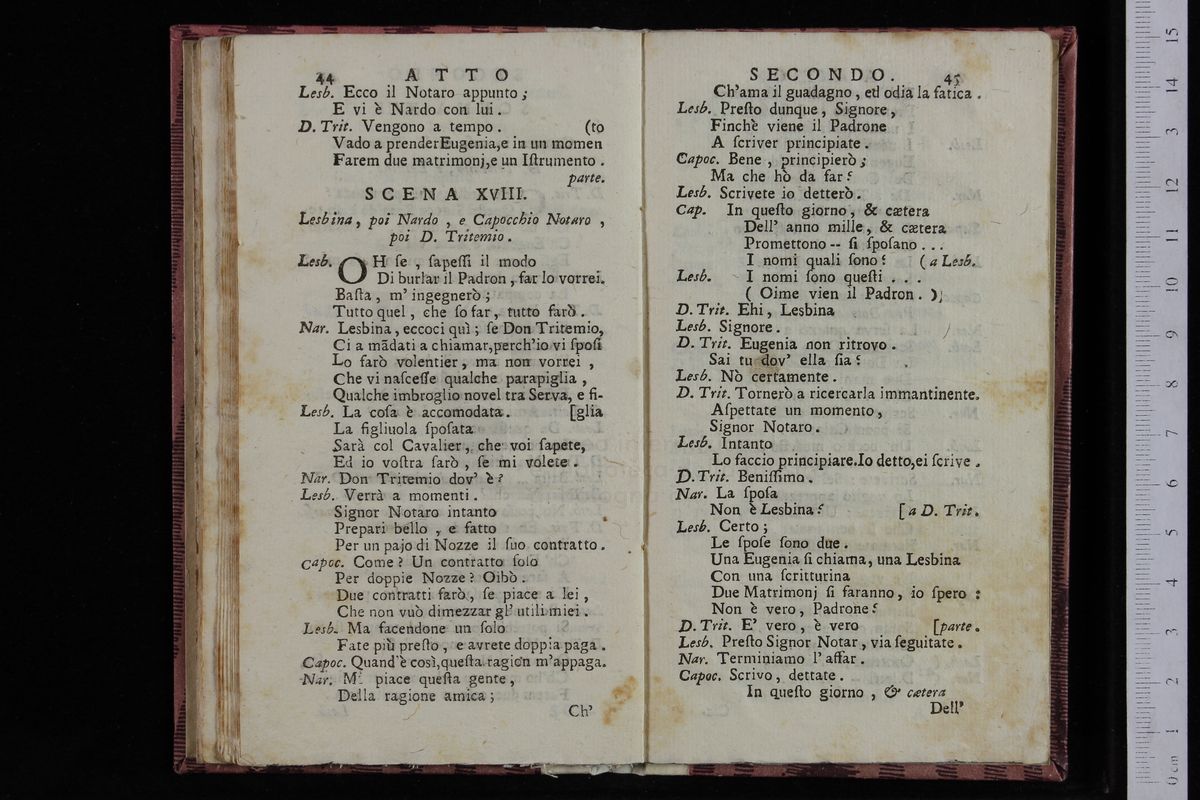 44 ATTO
Lesb. Ecco il Notaro appunto;
E vi è Nardo con lui.
D. Trit. Vengono a tempo. (to
Vado a prender Eugenia, e in un momen
Farem due matrimonj, e un Iſtrumento.
parte.
SCENA XVIII.
Lesbina, poi Nardo, e Capocchio Notaro,
poi D. Tritemio.
Lesb. OH ſe, ſapeſſi il modo
Di burlar il Padron, far lo vorrei.
Baſta, m' ingegnerò;
Tutto quel, che ſo far, tutto farò.
Nar. Lesbina, eccoci quì; ſe Don Tritemio,
Ci a mãdati a chiamar, perch'io vi ſpoſi
Lo farò volentier, ma non vorrei,
Che vi naſceſſe qualche parapiglia,
Qualche imbroglio novel tra Serva, e fi-
Lesb. La coſa è accomodata. [glia
La figliuola ſpoſata
Sarà col Cavalier, che voi ſapete,
Ed io voſtra ſarò, ſe mi volete.
Nar. Don Tritemio dov' è?
Lesb. Verrà a momenti.
Signor Notaro intanto
Prepari bello, e fatto
Per un pajo di Nozze il ſuo contratto.
Capoc. Come? Un contratto ſolo
Per doppie Nozze? Oibò.
Due contratti farò, ſe piace a lei,
Che non vuò dimezzar gl' utili miei.
Lesb. Ma facendone un ſolo
Fate più preſto, e avrete doppia paga.
Capoc. Quand'è così, queſta ragion m'appaga.
Nar. Mi piace queſta gente,
Della ragione amica;
Ch'
SECONDO. 45
Ch'ama il guadagno, ed odia la fatica.
Lesb. Preſto dunque, Signore,
Finchè viene il Padrone
A ſcriver principiate.
Capoc. Bene, principierò;
Ma che hò da far?
Lesb. Scrivete io detterò.
Cap. In queſto giorno, & cætera
Dell' anno mille, & cætera
Promettono -- ſi ſpoſano ...
I nomi quali ſono? (a Lesb.
Lesb. I nomi ſono queſti ...
( Oime vien il Padron. )
D. Trit. Ehi, Lesbina
Lesb. Signore.
D. Trit. Eugenia non ritrovo.
Sai tu dov' ella ſia?
Lesb. Nò certamente.
D. Trit. Tornerò a ricercarla immantinente.
Aſpettate un momento,
Signor Notaro.
Lesb. Intanto
Lo faccio principiare. Io detto, ei ſcrive.
D. Trit. Beniſſimo.
Nar. La ſpoſa
Non è Lesbina? [a D. Trit.
Lesb. Certo;
Le ſpoſe ſono due.
Una Eugenia ſi chiama, una Lesbina
Con una ſcritturina
Due Matrimonj ſi faranno, io ſpero:
Non è vero, Padrone?
D. Trit. E' vero, è vero [parte.
Lesb. Preſto Signor Notar, via ſeguitate.
Nar. Terminiamo l' affar.
Capoc. Scrivo, dettate.
In queſto giorno, & cætera
Dell'
0 cm 1 2 3 4 5 6 7 8 9 10 11 12 13 14 15